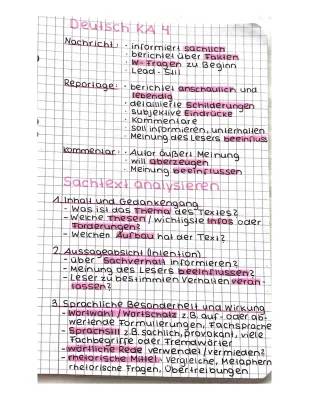 Deutsch KA 4
Nachricht: · informiert sachlich
· berichtet über Fakten
· W-Fragen zu Beginn
· Lead-Stil
Reportage: · berichtet anschaulich und
lebendig
· detaillierte Schilderungen
· subjektive Eindrücke
· Kommentare
· soll informieren, unterhalten
· Meinung des Lesers beeinfluss
Kommentar: · Autor äußert Meinung
· will überzeugen
· Meinung beeinflussen
Sachtext analysieren
1. Inhalt und Gedankengang
- Was ist das Thema des Textes?
- Welche Thesen/wichtigste Infos oder
Forderungen?
- Welchen Aufbau hat der Text?
2. Aussageabsicht (Intention)
- über Sachverhalt informieren?
- Meinung des Lesers beeinflussen?
- Leser zu bestimmten Verhalten veran-
lassen?
3. Sprachliche Besonderheit und Wirkung
- Wortwahl/Wortschatz z.B. auf- oder ab-
wertende Formulierungen, Fachsprache
- Sprachstil z.B. sachlich, provokant, viele
Fachbegriffe oder Fremdwörter
- wörtliche Rede verwendet/vermieden?
- rhetorische Mittel: Vergleiche, Metaphern
rhetorische Fragen, Übertreibungen